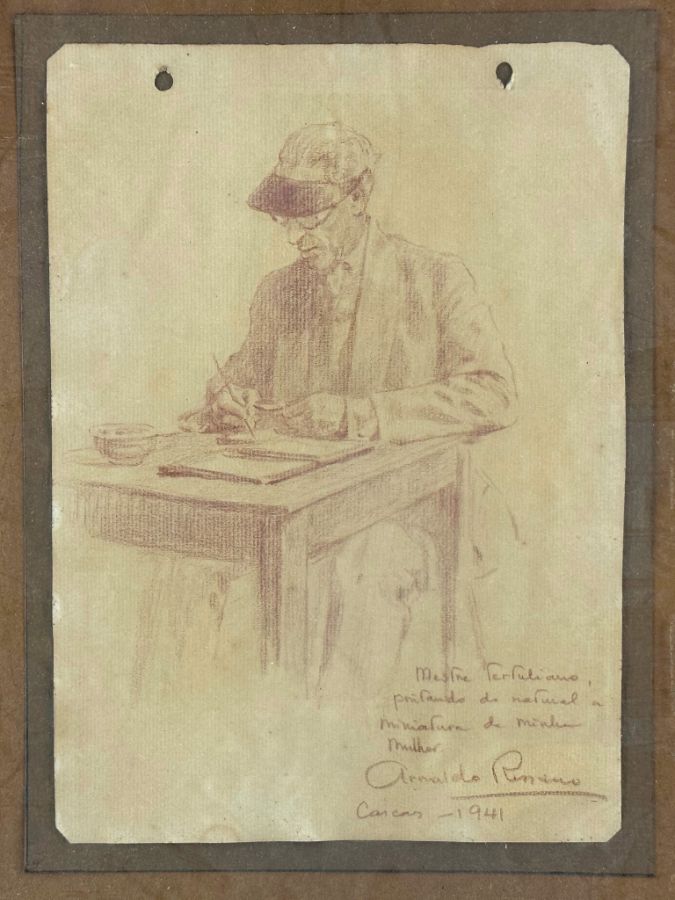 Mestre Tertuliano,
pintando do natural a
miniatura de minha
Mulher.
Arnaldo Ressano
Cascas - 1941